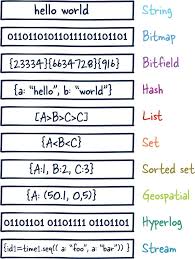 hello world String
011011010110111101101 Bitmap
{23334}{6634728}{916} Bitfield
{a: "hello", b: "world"} Hash
[A>B>C>C] List
{A<B<C} Set
{A:1, B:2, C:3} Sorted set
{A: (50.1, 0,5)} Geospatial
01101101 01101111 01101101 Hyperlog
{id1=time1.seq(( a: "foo", a: "bar")) } Stream